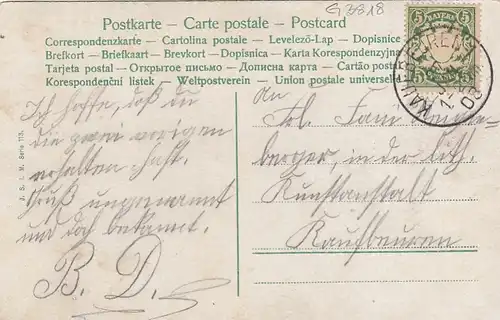 G 3818
Postkarte — Carte postale — Postcard
Correspondenzkarte — Cartolina postale — Levelező-Lap — Dopisnice
Brefkort — Briefkaart — Brevkort — Dopisnica — Karta Korespondencyjna
Tarjeta postal — Открытое письмо — Дописна карта — Cartão postal
Korespondenční listek — Weltpostverein — Union postale universelle
BAYERN
5 5
KAUFBEUREN
Ich hoffe, daß du
die zwei vorigen
erhalten hast.
Gruß ungenannt
und doch bekannt.
B. D.
An
Frl.
berger, in der lith.
Kunstanstalt
Kaufbeuren
J. S. i. M. Serie 118.